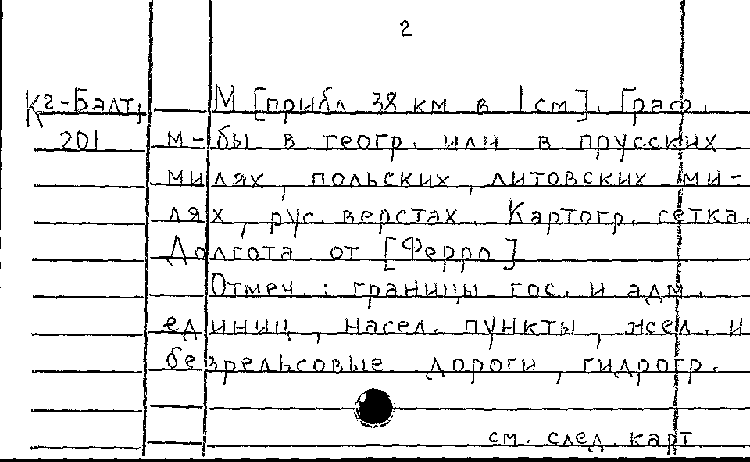 2
Кг-Балт,
201
М [прибл 38 км в 1 см]. Граф.
м-бы в геогр. или в прусских
милях, польских, литовских ми-
лях, рус. верстах. Картогр. сетка.
Долгота от [Ферро]
Отмеч.: границы гос. и адм.
единиц, насел. пункты, жел. и
безрельсовые дороги, гидрогр.
см. след. карт